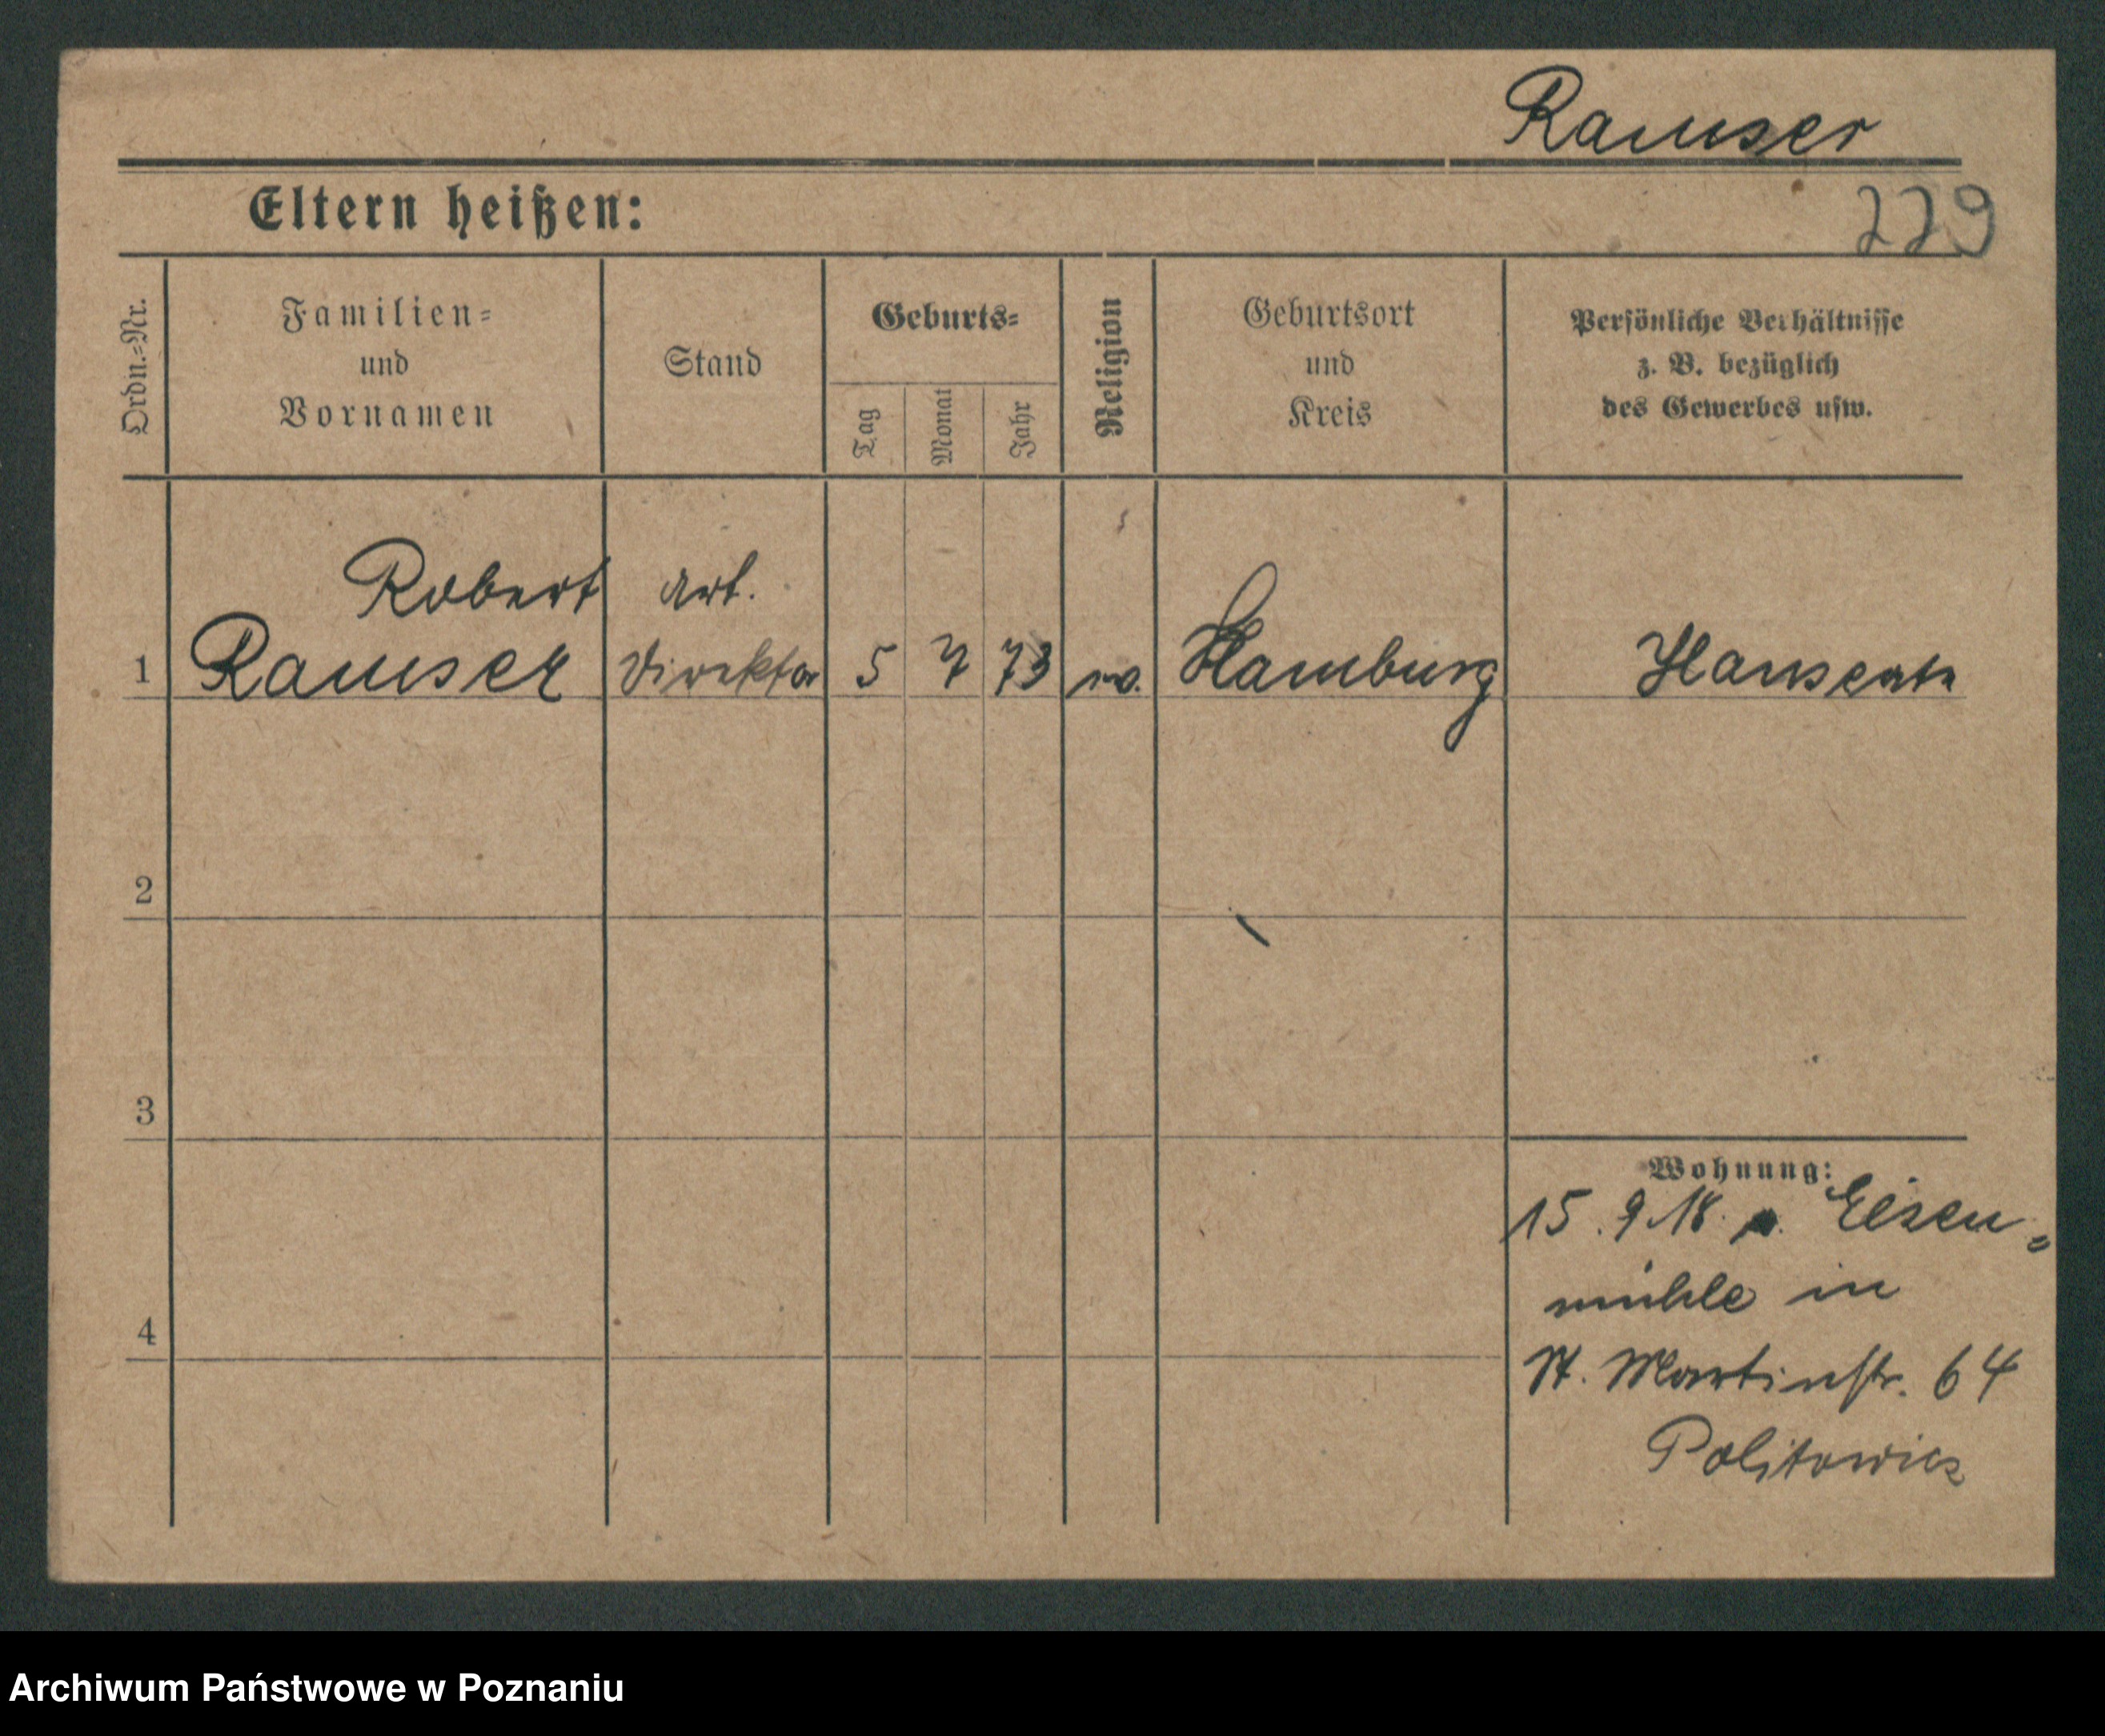 Ramser
Eltern heißen:
229
Ordn.=Nr.
Familien=
und
Vornamen
Stand
Geburts=
Tag
Monat
Jahr
Religion
Geburtsort
und
Kreis
Persönliche Verhältnisse
z. B. bezüglich
des Gewerbes usw.
Robert art.
1 Ramser Direktor 5 7 73 Hamburg
2
3
Wohnung:
15.9.18. Eisen=
mühle in
4
St. Martinstr. 64
Politowicz
Archiwum Państwowe w Poznaniu